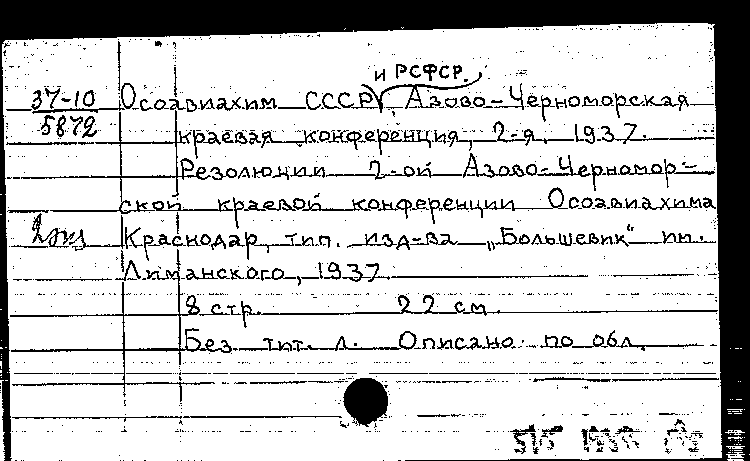 и РСФСР.
37-10 Осоавиахим СССР, Азово-Черноморская
5872 краевая конференция, 2-я. 1937.
Резолюции 2-ой Азово-Черномор-
ской краевой конференции Осоавиахима
2 экз Краснодар, тип. изд-ва „Большевик" им.
Лиманского, 1937.
8 стр. 22 см.
Без тит. л. Описано по обл.